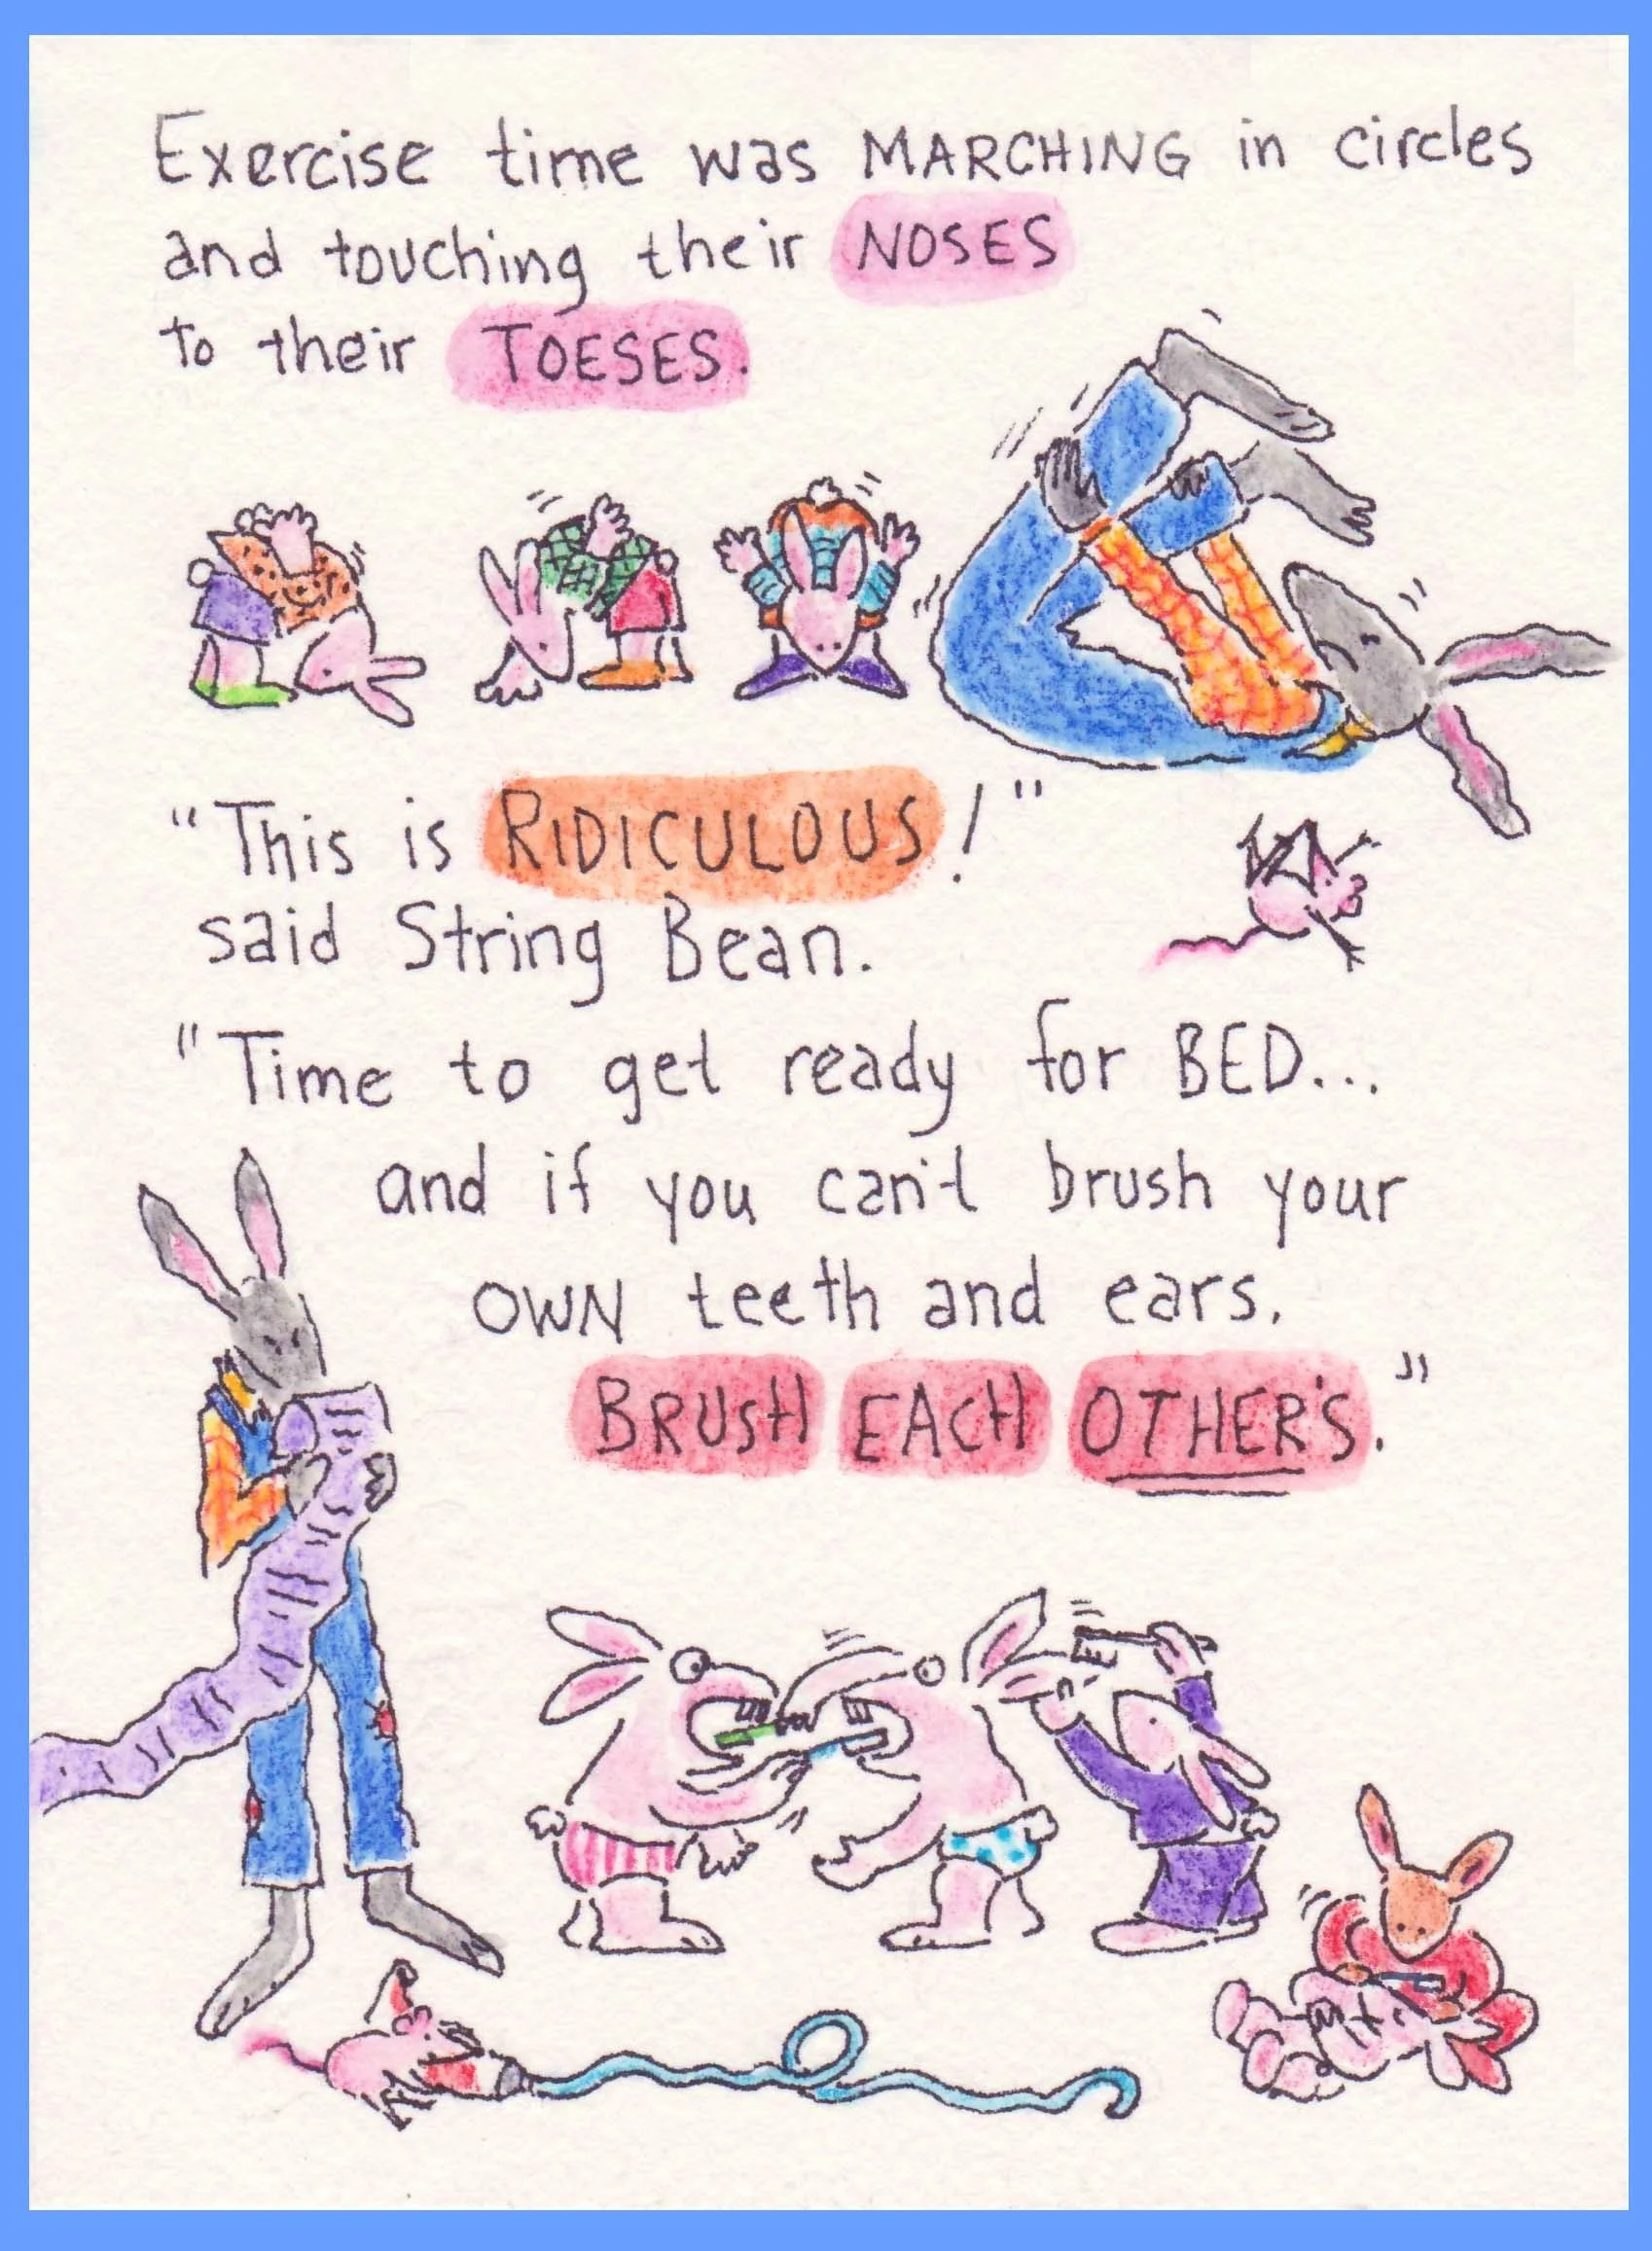 Exercise time was MARCHING in circles
and touching their NOSES
to their TOESES.
"This is RIDICULOUS!"
said String Bean.
"Time to get ready for BED...
and if you can't brush your
OWN teeth and ears,
BRUSH EACH OTHER'S."